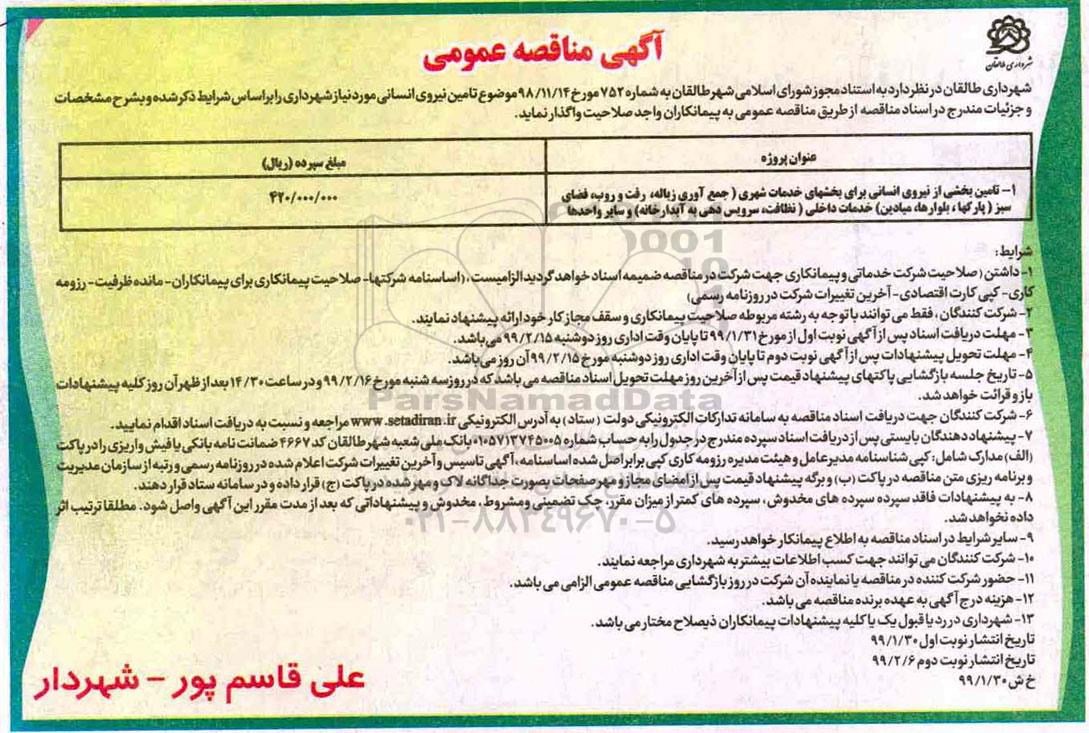 شهرداری طالقان
آگهی مناقصه عمومی
شهرداری طالقان در نظر دارد به استناد مجوز شورای اسلامی شهر طالقان به شماره ۷۵۲ مورخ ۹۸/۱۱/۱۴ موضوع تامین نیروی انسانی مورد نیاز شهرداری را براساس شرایط ذکر شده و بشرح مشخصات
و جزئیات مندرج در اسناد مناقصه از طریق مناقصه عمومی به پیمانکاران واجد صلاحیت واگذار نماید.
عنوان پروژه
مبلغ سپرده (ریال)
۱- تامین بخشی از نیروی انسانی برای بخشهای خدمات شهری ( جمع آوری زباله، رفت و روب، فضای
سبز ( پارکها ، بلوارها، میادین) خدمات داخلی ( نظافت، سرویس دهی به آبدارخانه) و سایر واحدها
۴۲۰/۰۰۰/۰۰۰
شرایط:
۱- داشتن ( صلاحیت شرکت خدماتی و پیمانکاری جهت شرکت در مناقصه ضمیمه اسناد خواهد گردید الزامیست ، (اساسنامه شرکتها- صلاحیت پیمانکاری برای پیمانکاران- مانده ظرفیت- رزومه
کاری- کپی کارت اقتصادی- آخرین تغییرات شرکت در روزنامه رسمی)
۲- شرکت کنندگان ، فقط می توانند با توجه به رشته مربوطه صلاحیت پیمانکاری و سقف مجاز کار خود ارائه پیشنهاد نمایند.
۳- مهلت دریافت اسناد پس از آگهی نوبت اول از مورخ ۹۹/۱/۳۱ تا پایان وقت اداری روز دوشنبه ۹۹/۲/۱۵ می باشد.
۴- مهلت تحویل پیشنهادات پس از آگهی نوبت دوم تا پایان وقت اداری روز دوشنبه مورخ ۹۹/۲/۱۵ آن روز می باشد.
۵- تاریخ جلسه بازگشایی پاکتهای پیشنهاد قیمت پس از آخرین روز مهلت تحویل اسناد مناقصه می باشد که در روز سه شنبه مورخ ۹۹/۲/۱۶ و در ساعت ۱۴/۳۰ بعد از ظهر آن روز کلیه پیشنهادات
باز و قرائت خواهد شد.
۶- شرکت کنندگان جهت دریافت اسناد مناقصه به سامانه تدارکات الکترونیکی دولت ( ستاد ) به آدرس الکترونیکی www.setadiran.ir مراجعه و نسبت به دریافت اسناد اقدام نمایید.
۷- پیشنهاد دهندگان بایستی پس از دریافت اسناد سپرده مندرج در جدول را به حساب شماره ۰۱۰۵۷۱۳۷۴۵۰۰۵ بانک ملی شعبه شهر طالقان کد ۴۶۶۷ ضمانت نامه بانکی یا فیش واریزی را در پاکت
(الف) مدارک شامل: کپی شناسنامه مدیر عامل و هیئت مدیره رزومه کاری کپی برابر اصل شده اساسنامه، آگهی تاسیس و آخرین تغییرات شرکت اعلام شده در روزنامه رسمی و رتبه از سازمان مدیریت
و برنامه ریزی متن مناقصه در پاکت (ب) و برگه پیشنهاد قیمت پس از امضای مجاز و مهر صفحات بصورت جداگانه لاک و مهر شده در پاکت (ج) قرار داده و در سامانه ستاد قرار دهند.
۸- به پیشنهادات فاقد سپرده سپرده های مخدوش، سپرده های کمتر از میزان مقرر، چک تضمینی و مشروط ، مخدوش و پیشنهاداتی که بعد از مدت مقرر این آگهی واصل شود. مطلقا ترتیب اثر
داده نخواهد شد.
۹- سایر شرایط در اسناد مناقصه به اطلاع پیمانکار خواهد رسید.
۱۰- شرکت کنندگان می توانند جهت کسب اطلاعات بیشتر به شهرداری مراجعه نمایند.
۱۱- حضور شرکت کننده در مناقصه یا نماینده آن شرکت در روز بازگشایی مناقصه عمومی الزامی می باشد.
۱۲- هزینه درج آگهی به عهده برنده مناقصه می باشد.
۱۳- شهرداری در رد یا قبول یک یا کلیه پیشنهادات پیمانکاران ذیصلاح مختار می باشد.
تاریخ انتشار نوبت اول ۹۹/۱/۳۰
تاریخ انتشار نوبت دوم ۹۹/۲/۶
خ ش ۹۹/۱/۳۰
علی قاسم پور - شهردار
ParsNamadData
۰۲۱-۸۸۳۴۹۶۷۰-۵